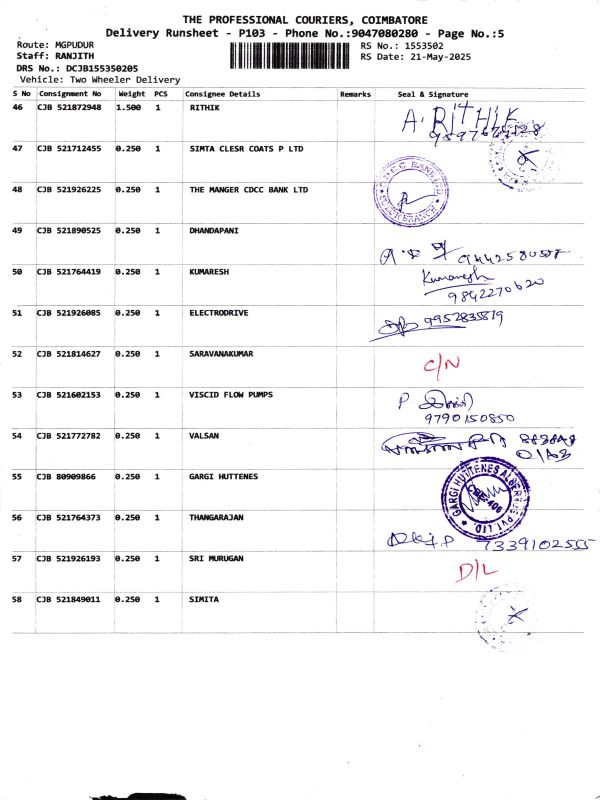 THE PROFESSIONAL COURIERS, COIMBATORE
Delivery Runsheet - P103 - Phone No.:9047080280 - Page No.:5
Route: MGPUDUR RS No.: 1553502
Staff: RANJITH RS Date: 21-May-2025
DRS No.: DCJB155350205
Vehicle: Two Wheeler Delivery
S No Consignment No Weight PCS Consignee Details Remarks Seal & Signature
46 CJB 521872948 1.500 1 RITHIK A. RITHIK
47 CJB 521712455 0.250 1 SIMTA CLESR COATS P LTD
48 CJB 521926225 0.250 1 THE MANGER CDCC BANK LTD
49 CJB 521890525 0.250 1 DHANDAPANI
50 CJB 521764419 0.250 1 KUMARESH Kumaresh
9842270620
51 CJB 521926085 0.250 1 ELECTRODRIVE 9952835819
52 CJB 521814627 0.250 1 SARAVANAKUMAR C/N
53 CJB 521602153 0.250 1 VISCID FLOW PUMPS P
9790150850
54 CJB 521772782 0.250 1 VALSAN
55 CJB 80909866 0.250 1 GARGI HUTTENES GARGI HUTTENES ALBERTUS PVT LTD
56 CJB 521764373 0.250 1 THANGARAJAN 7339102555
57 CJB 521926193 0.250 1 SRI MURUGAN D/L
58 CJB 521849011 0.250 1 SIMITA